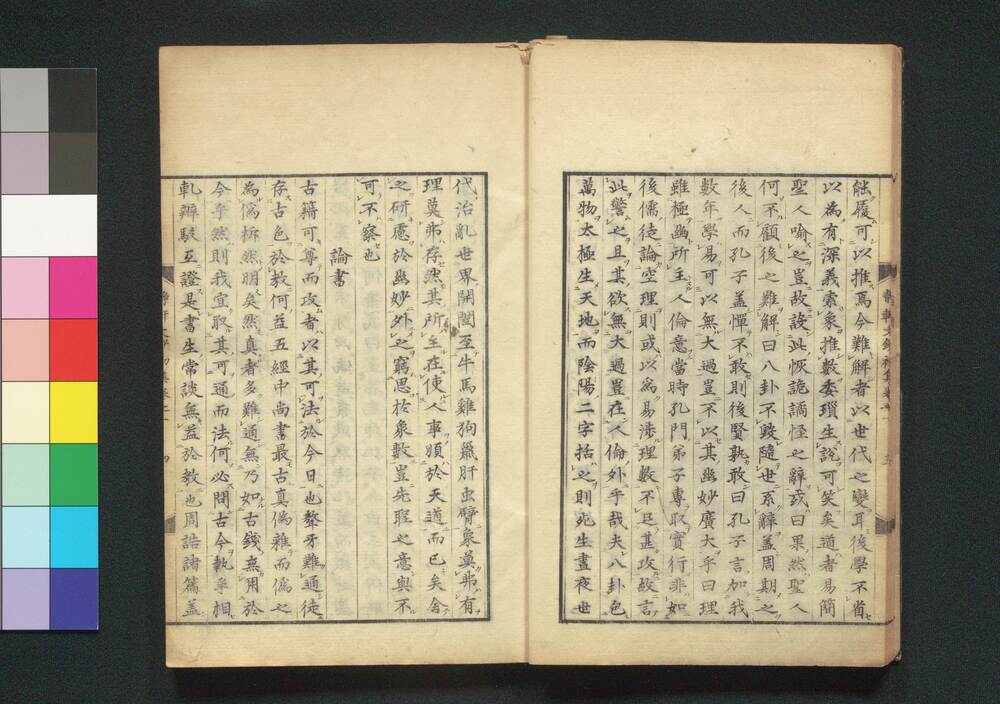 能履可以推焉今難解者以世代之變耳後學不省
以為有深義索象推數委瑣生說可笑矣道者易簡
聖人喻之豈故設此恢詭譎怪之辭或曰果然聖人
何不顧後之難解曰八卦不毀隨世系辭蓋周期之
後人而孔子蓋憚不敢則後賢孰敢曰孔子言加我
數年學易可以無大過豈不以其幽妙廣大乎曰理
雖極幽所主人倫意當時孔門弟子專取實行非如
後儒徒論空理則或以為易涉理數不足甚攻故言
此警之且其欲無大過豈在人倫外乎哉夫八卦色
萬物太極生天地而陰陽二字括之則死生晝夜世
代治亂世界開闔至牛馬雞狗鼠肝虫臂象莫弗有
理莫弗存然其所主在使人事順於天道而已矣舍
之研慮於幽妙外之窮思於象數豈先聖之意與不
可不察也
論書
古籍可尊而攻者以其可法於今日也聱牙難通徒
存古色於教何益五經中尚書最古真偽雜而偽之
為偽柝然明矣然真者多難通無乃如古錢無用於
今乎然則我宣取其可通而法何必問古今執乎相
軋辨駁互證是書生常談無益於教也周誥諸篇蓋